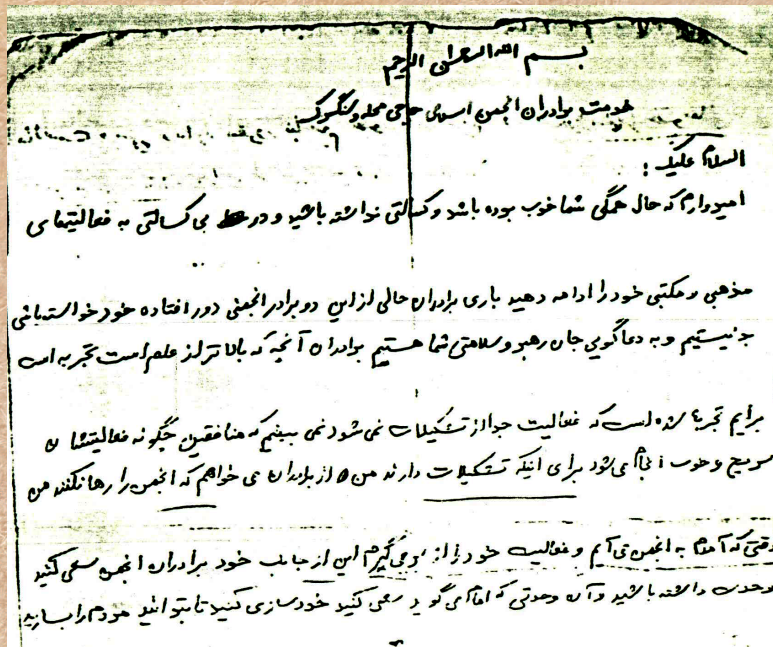 بسم الله الرحمن الرحیم
خدمت برادران انجمن اسلامی حاجی محله و سنگرک
السلام علیک :
امیدوارم که حال همگی شما خوب بوده باشد و کسالتی نداشته باشید و در بی کسالتی به فعالیتهای
مذهبی و مکتبی خود را ادامه دهید باری برادران حالی از این دو برادر انجمنی دور افتاده خود خواسته باشی
بد نیستیم و به دعاگویی جان رهبر و سلامتی شما هستیم برادران آنچه که بالاتر از علم است تجربه است
برایم تجربه شده است که فعالیت جدا از تشکیلات نمی شود نمی بینیم که منافقین چگونه فعالیتشان
سریع و خوب انجام می شود برای اینکه تشکیلات دارند من از برادران می خواهم که انجمن را رها نکنند من
وقتی که آمدم به انجمن می آیم و فعالیت خود را از سر می گیرم این از جانب خود برادران انجمن سعی کنید
وحدت داشته باشید و آن وحدتی که امام می گوید سعی کنید خودسازی کنید تا بتوانید مردم را بسازید